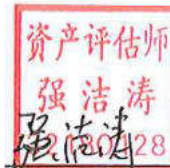 资产评估师
强洁涛
强洁涛